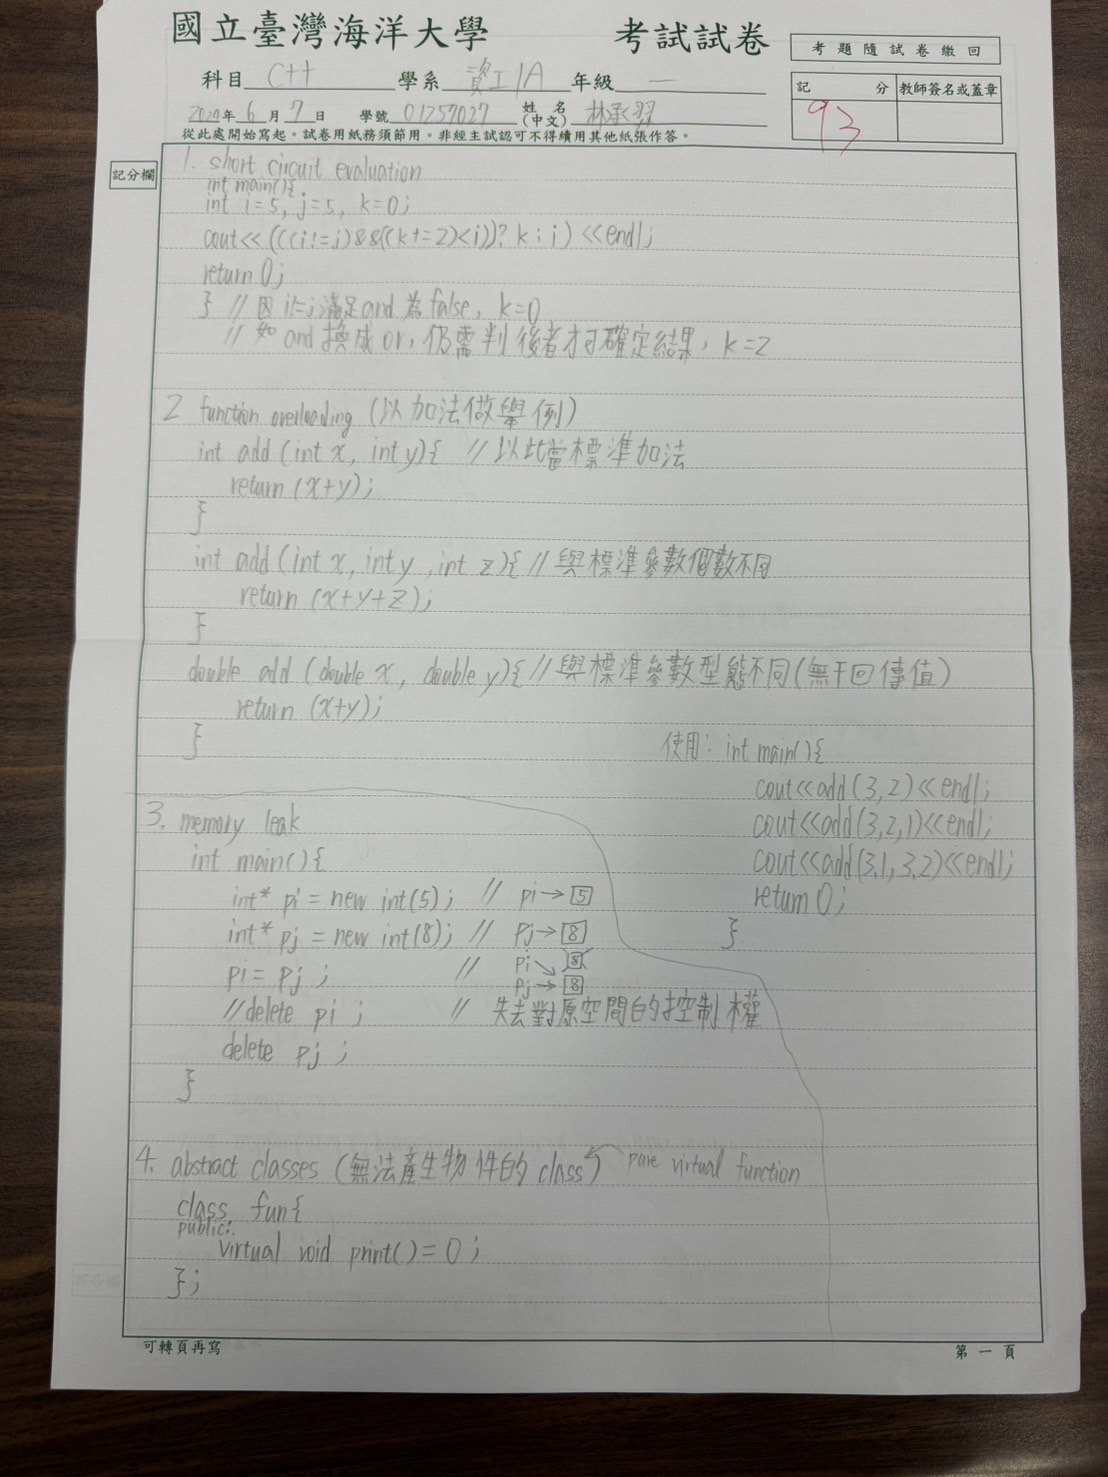 國立臺灣海洋大學 考試試卷
考題隨試卷繳回
科目 C++ 學系 資工1A 年級 一
記分 教師簽名或蓋章
93
2024年 6 月 7 日 學號 01257027 姓名(中文) 林承羿
從此處開始寫起。試卷用紙務須節用。非經主試認可不得續用其他紙張作答。
記分欄
1. short circuit evaluation
int main(){
int i=5, j=5, k=0;
cout<< (((i!=j)&&((k+=2)<i))? k : i) <<endl;
return 0;
} // 因 i!=j 滿足 and 為 false, k=0
// 如 and 換成 or, 仍需判後者才可確定結果, k=2
2 function overloading (以加法做舉例)
int add (int x, int y){ // 以此當標準加法
return (x+y);
}
int add (int x, int y, int z){ // 與標準參數個數不同
return (x+y+z);
}
double add (double x, double y){ // 與標準參數型態不同(無干回傳值)
return (x+y);
}
使用: int main(){
cout<<add(3,2)<<endl;
cout<<add(3,2,1)<<endl;
cout<<add(3.1, 3.2)<<endl;
return 0;
}
3. memory leak
int main(){
int* pi = new int(5); // pi→5
int* pj = new int(8); // pj→8
pi = pj ; // pi
pj→8
//delete pi ; // 失去對原空間的控制權
delete pj ;
}
4. abstract classes (無法產生物件的 class) pure virtual function
class fun{
public:
virtual void print() = 0 ;
};
可轉頁再寫
第一頁